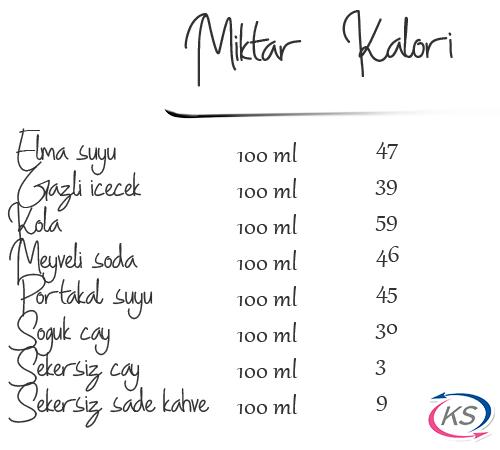 Miktar Kalori
Elma suyu 100 ml 47
Gazli icecek 100 ml 39
Kola 100 ml 59
Meyveli soda 100 ml 46
Portakal suyu 100 ml 45
Soguk cay 100 ml 30
Sekersiz cay 100 ml 3
Sekersiz sade kahve 100 ml 9
KS